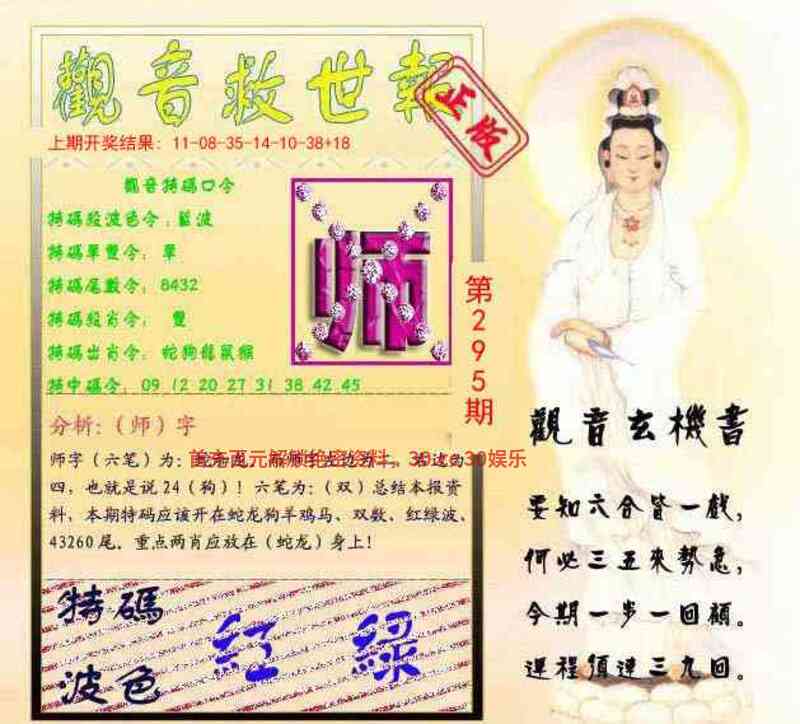 觀音救世報
正版
上期开奖结果：11-08-35-14-10-38+18
觀音特碼口令
特碼段波色令：藍波
特碼單雙令：單
特碼尾數令：8432
特碼段肖令：雙
特碼出肖令：蛇狗龍鼠猴
特中碼令：09 12 20 27 31 38 42 45
师
第295期
分析:（师）字
师字（六笔）为:
右边为
四，也就是说24（狗）！六笔为:（双）总结本报资
料，本期特码应该开在蛇龙狗羊鸡马、双数、红绿波、
43260尾，重点两肖应放在（蛇龙）身上!
特碼
波色
紅 綠
觀音玄機書
要知六合皆一戲，
何必三五來勢急，
今期一步一回顧。
運程須達三九回。